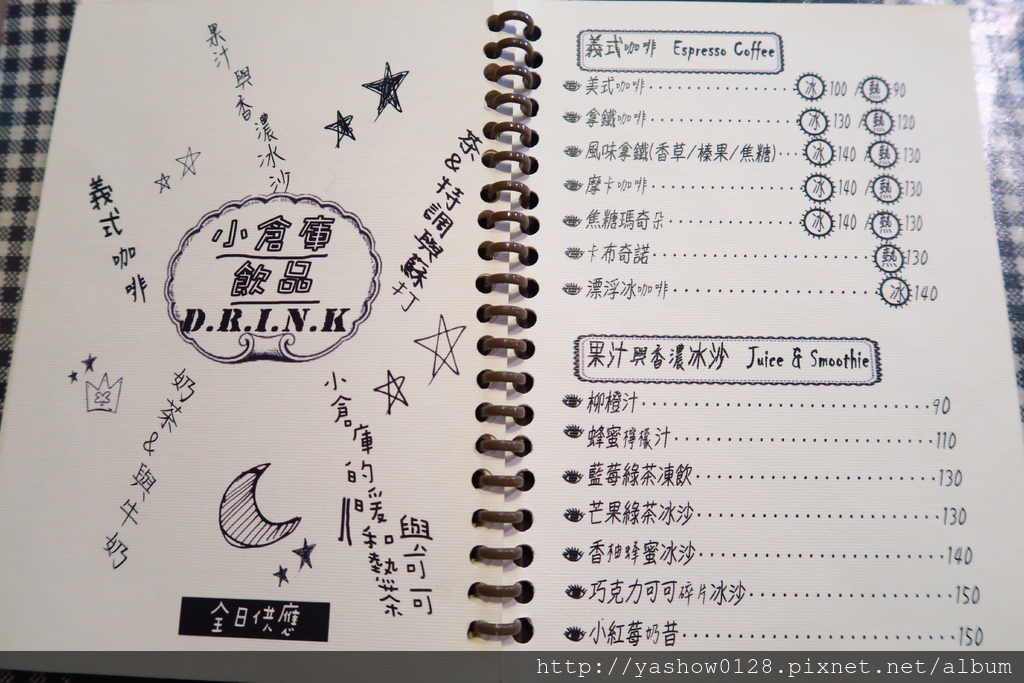 果汁與香濃冰沙
茶&特調與蘇打
義式咖啡
小倉庫
飲品
D.R.I.N.K
奶茶&與牛奶
小倉庫的暖
與可可
全日供應
義式咖啡 Espresso Coffee
美式咖啡 冰 100 / 熱 90
拿鐵咖啡 冰 130 / 熱 120
風味拿鐵(香草/榛果/焦糖) 冰 140 / 熱 130
摩卡咖啡 冰 140 / 熱 130
焦糖瑪奇朵 冰 140 / 熱 130
卡布奇諾 熱 130
漂浮冰咖啡 冰 140
果汁與香濃冰沙 Juice & Smoothie
柳橙汁 90
蜂蜜檸檬汁 110
藍莓綠茶凍飲 130
芒果綠茶冰沙 130
香柚蜂蜜冰沙 140
巧克力可可碎片冰沙 150
小紅莓奶昔 150
http://yashow0128.pixnet.net/album